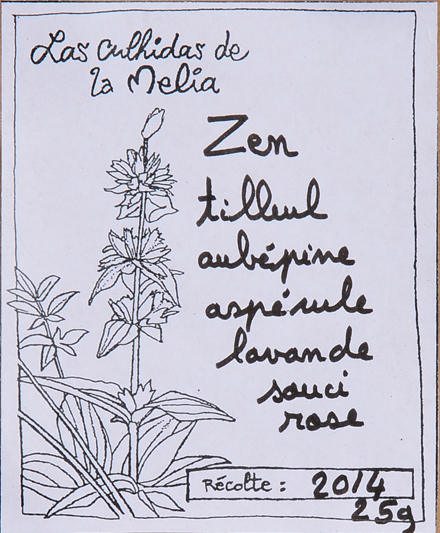 Las culhidas de
la Melia
Zen
tilleul
aubépine
aspérule
lavande
souci
rose
Récolte : 2014
25g